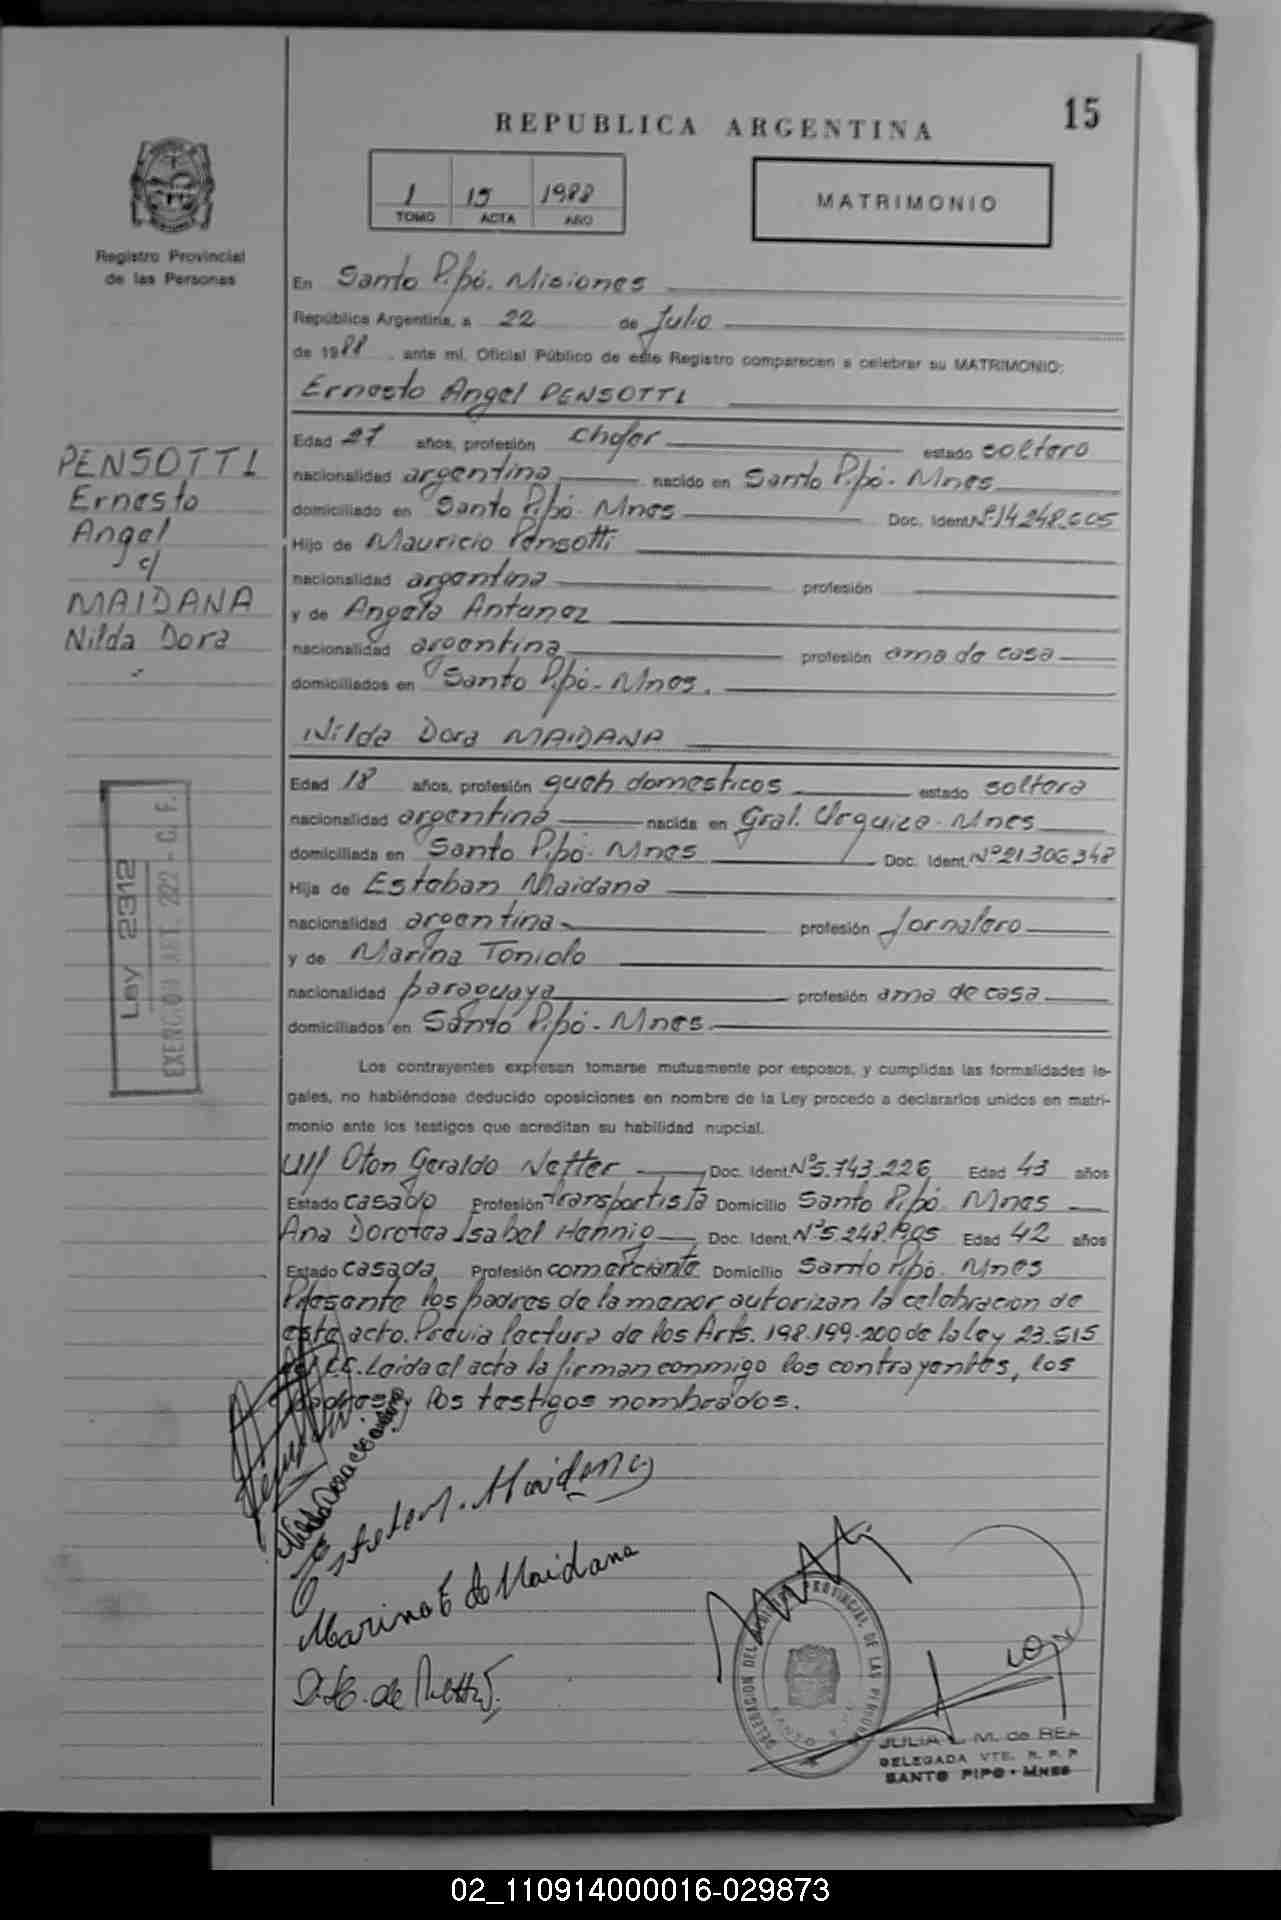 15
REPUBLICA ARGENTINA
1 15 1988
TOMO ACTA AÑO
MATRIMONIO
Registro Provincial
de las Personas
En Santo Pipó. Misiones
República Argentina, a 22 de Julio
de 1988, ante mí, Oficial Público de este Registro comparecen a celebrar su MATRIMONIO:
Ernesto Angel PENSOTTI
Edad 27 años, profesión chofer estado soltero
nacionalidad argentina nacido en Santo Pipó - Mnes
domiciliado en Santo Pipó - Mnes Doc. Ident. Nº 14.248.605
Hijo de Mauricio Pensotti
nacionalidad argentina profesión
y de Angela Antunez
nacionalidad argentina profesión ama de casa
domiciliados en Santo Pipó - Mnes.
PENSOTTI
Ernesto
Angel
c/
MAIDANA
Nilda Dora
Nilda Dora MAIDANA
Edad 18 años, profesión queh domesticos estado soltera
nacionalidad argentina nacida en Gral. Urquiza - Mnes
domiciliada en Santo Pipó - Mnes Doc. Ident. Nº 21.306.348
Hija de Esteban Maidana
nacionalidad argentina profesión Jornalero
y de Marina Toniolo
nacionalidad paraguaya profesión ama de casa
domiciliados en Santo Pipó - Mnes
Ley 2312
EXENCION ART. 222 - C. F.
Los contrayentes expresan tomarse mutuamente por esposos, y cumplidas las formalidades le-
gales, no habiéndose deducido oposiciones en nombre de la Ley procedo a declararlos unidos en matri-
monio ante los testigos que acreditan su habilidad nupcial.
Ulf Oton Geraldo Netter Doc. Ident. Nº 5.743.226 Edad 43 años
Estado casado Profesión transportista Domicilio Santo Pipó Mnes
Ana Dorotea Isabel Hennig Doc. Ident. Nº 5.248.1905 Edad 42 años
Estado casada Profesión comerciante Domicilio Santo Pipó. Mnes
Presente los padres de la menor autorizan la celebracion de
este acto. Previa lectura de los Arts. 198.199-200 de la ley 23.515
C.C. Leida el acta la firman conmigo los contrayentes, los
padres y los testigos nombrados.
Nilda Dora
Esteban Maidana
Marina E de Maidana
DELEGACION DEL REGISTRO PROVINCIAL DE LAS PERSONAS
SANTO PIPO
JULIA L. M. de REA
DELEGADA VTE. R. P. P
SANTO PIPO - MNES
02_110914000016-029873